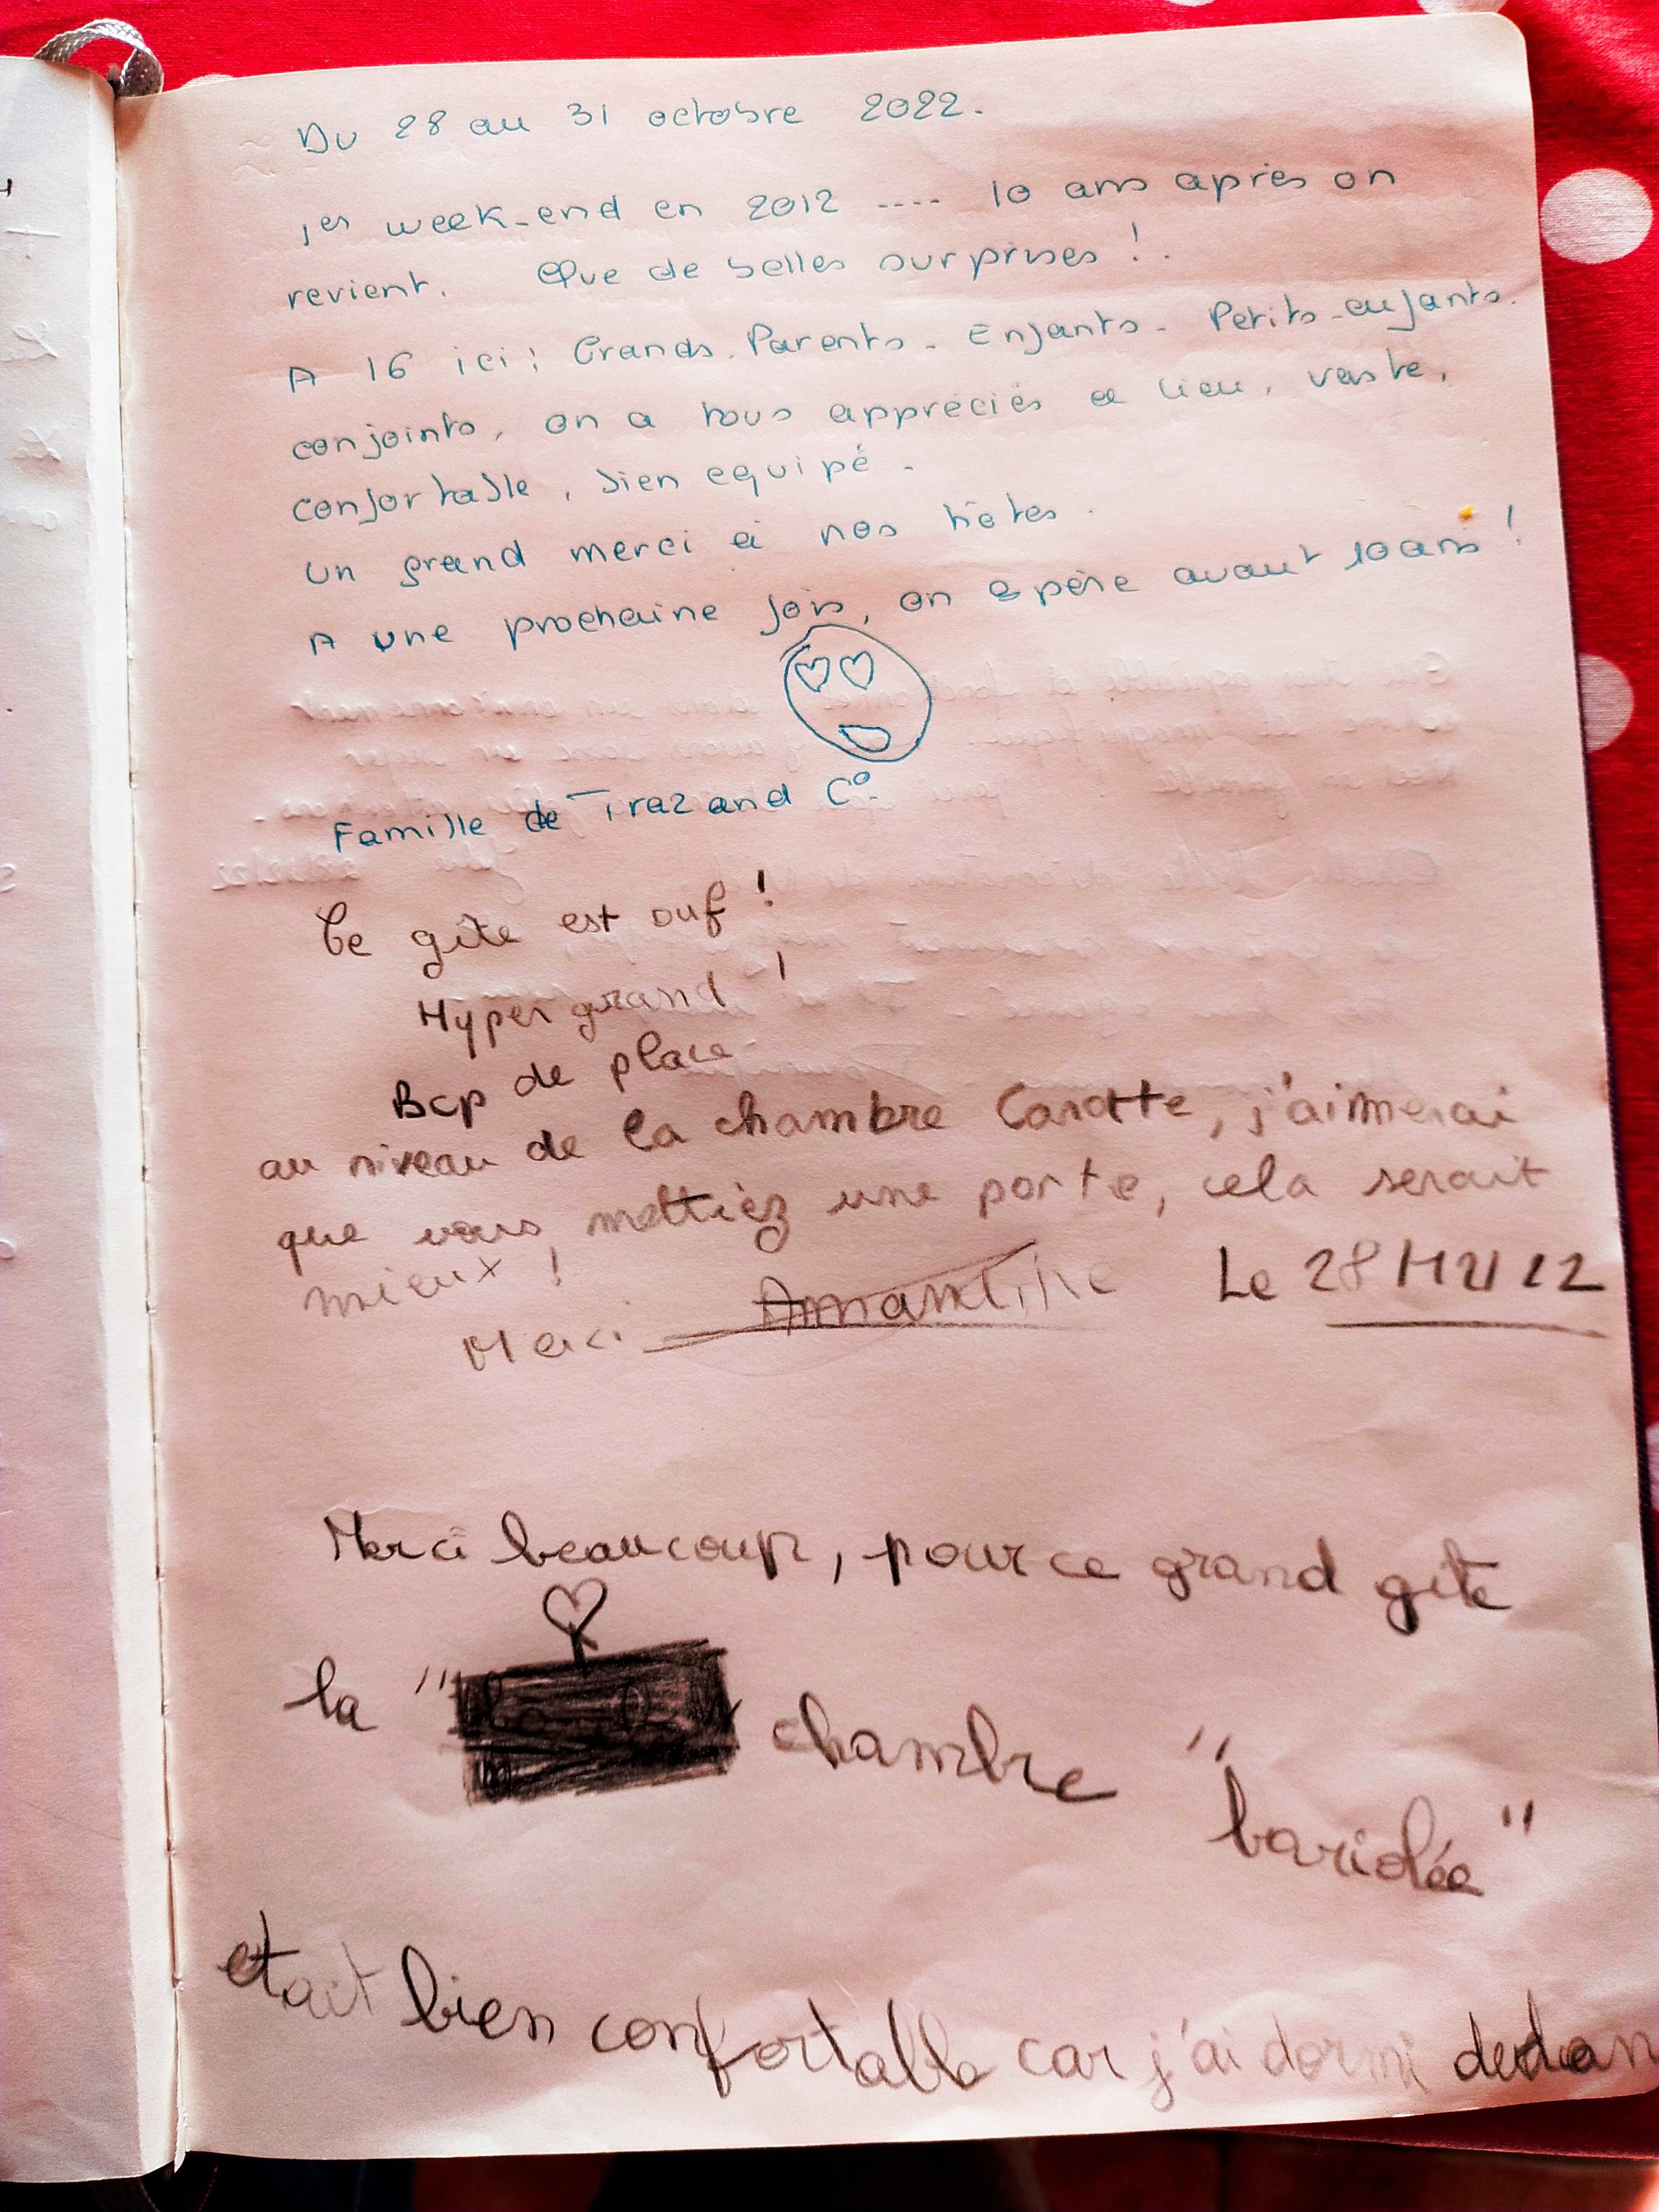 Du 28 au 31 octobre 2022.
1er week-end en 2012 .... 10 ans après on
revient. Que de belles surprises !.
A 16 ici : Grands-Parents - Enfants - Petits-enfants.
conjoints, on a tous appréciés ce lieu, vaste,
confortable, bien equipé.
Un grand merci à nos hôtes.
A une prochaine fois, on espère avant 10 ans !
Famille de Traz and C°.
Ce gîte est ouf !
Hyper grand !
Bcp de place
au niveau de la chambre Carotte, j'aimerai
que vous mettiez une porte, cela serait
mieux !
Merci Amandine Le 28 MAI 22
Merci beaucoup, pour ce grand gite
la " chambre "bariolée"
etait bien confortable car j'ai dormi dedan